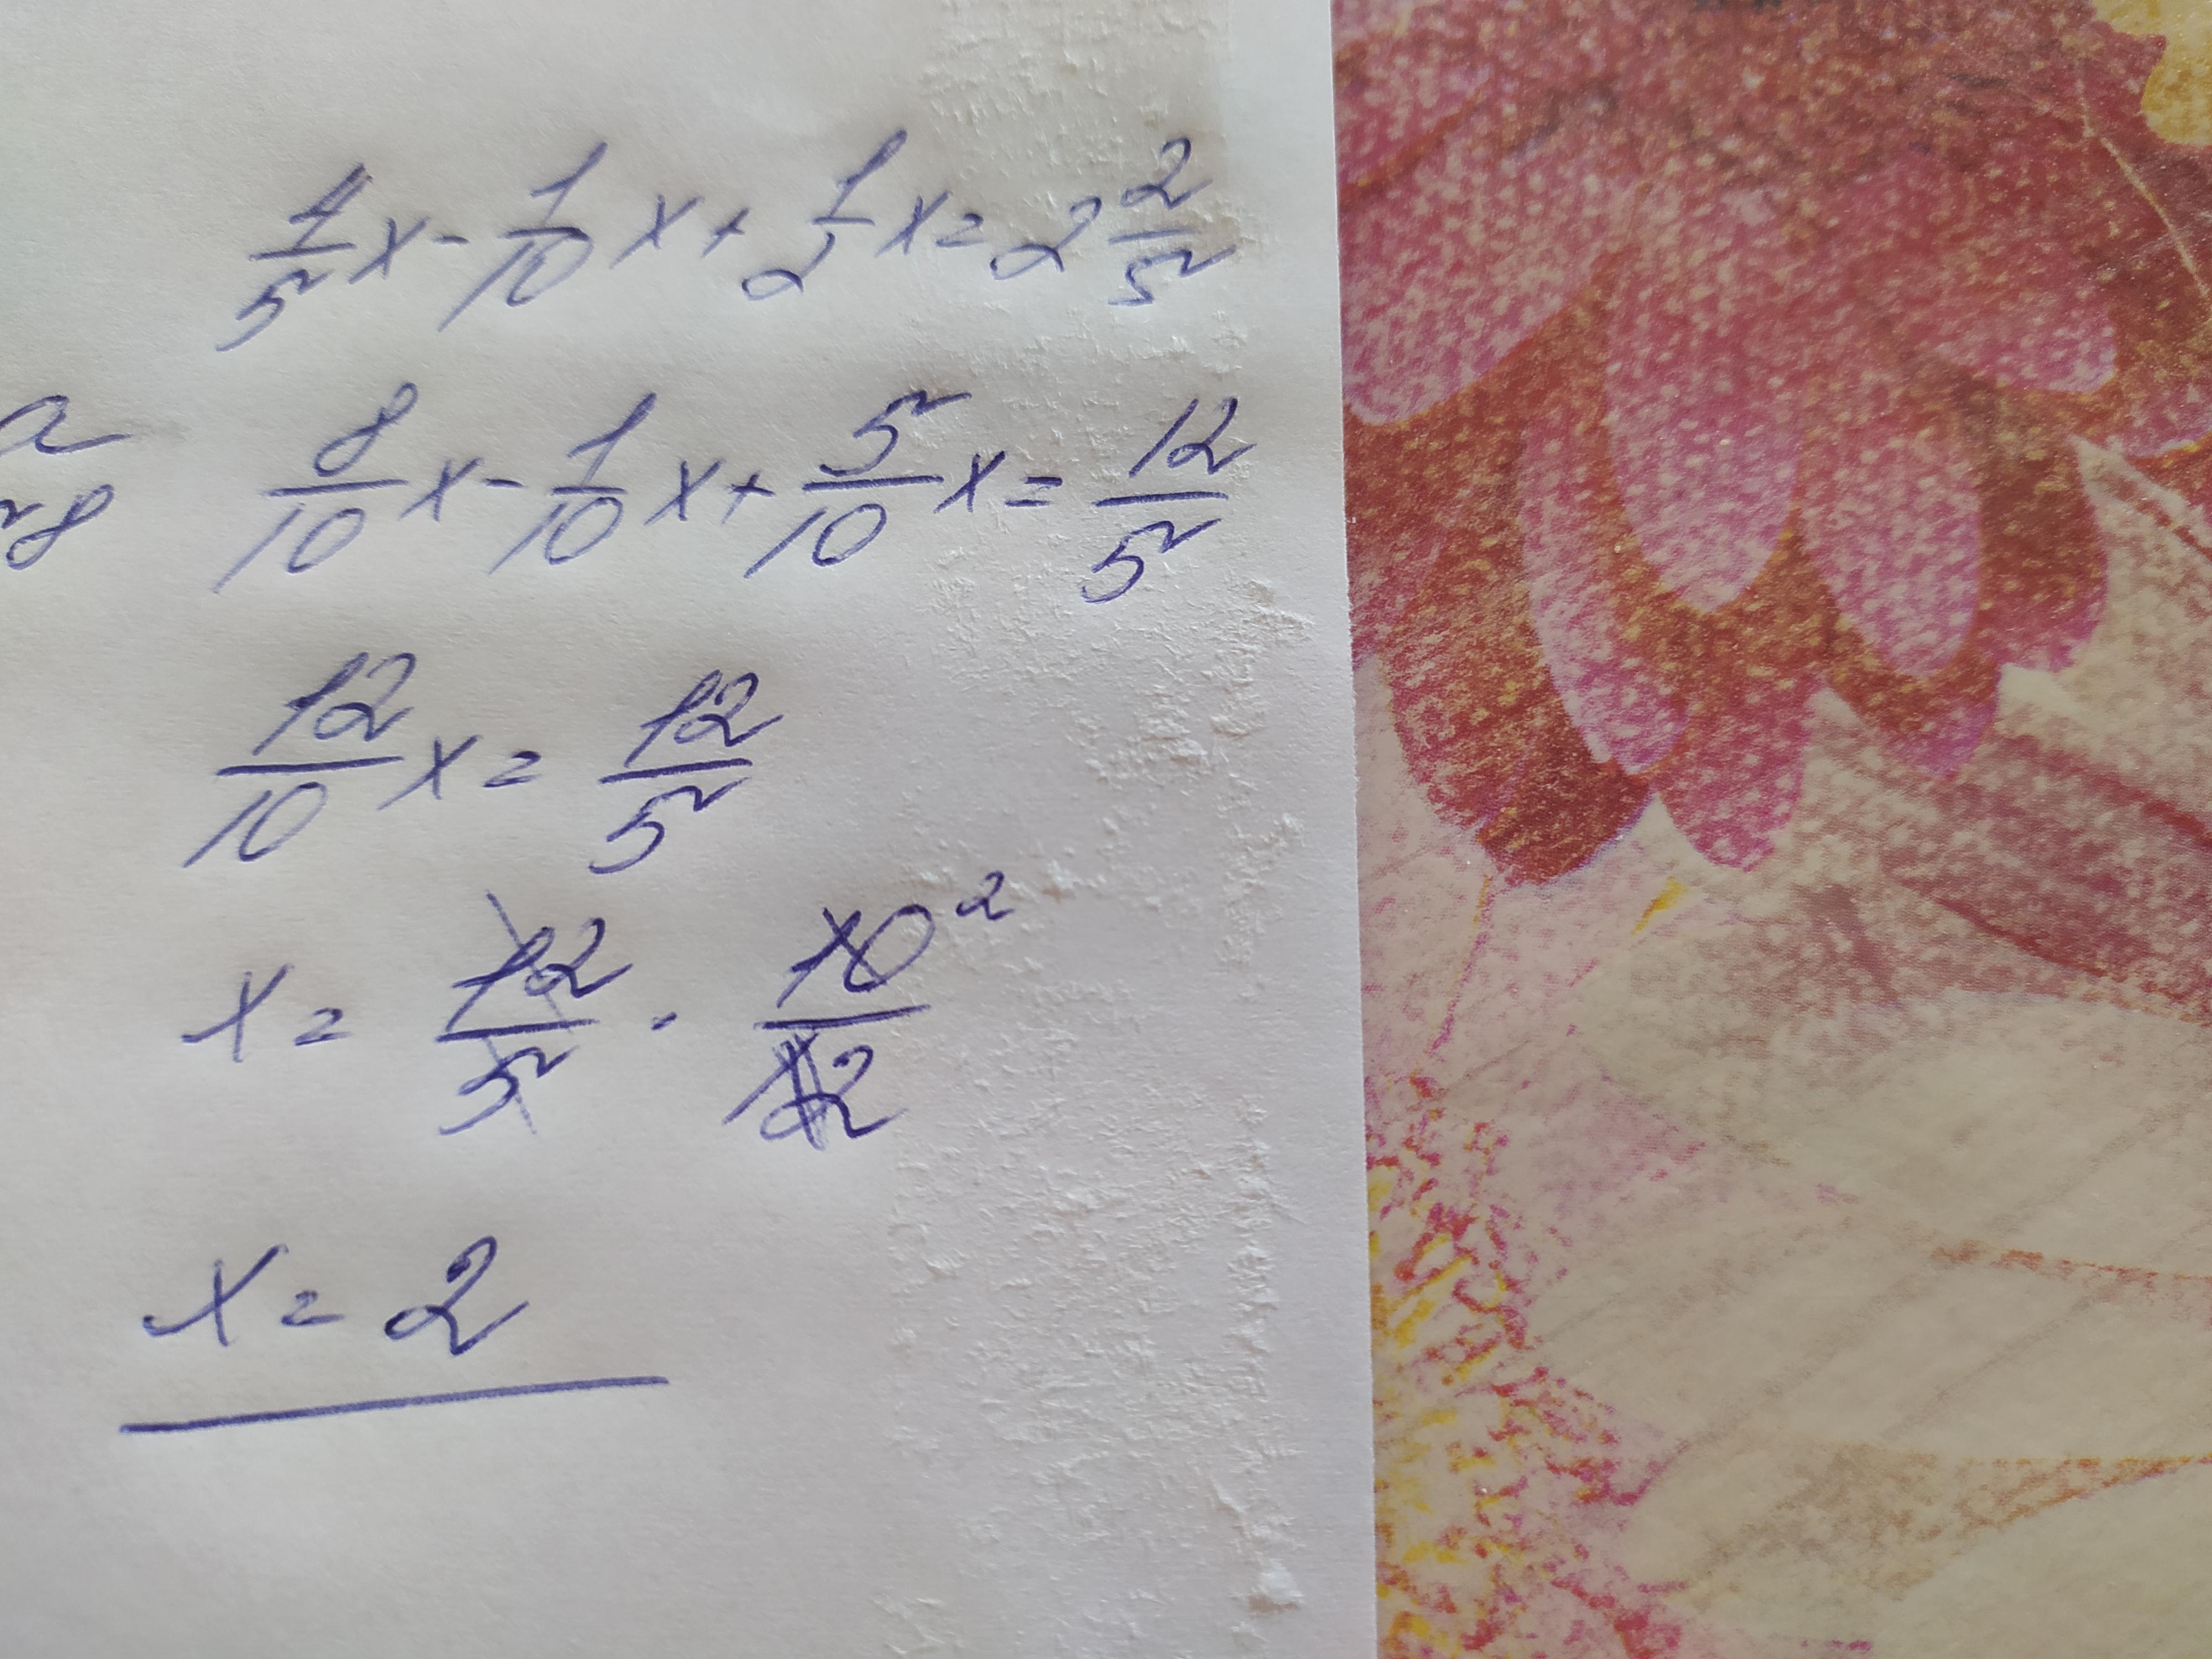 4/5 x - 1/10 x + 1/2 x = 2 2/5
8/10 x - 1/10 x + 5/10 x = 12/5
12/10 x = 12/5
x = 12/5 · 10²/12
x = 2